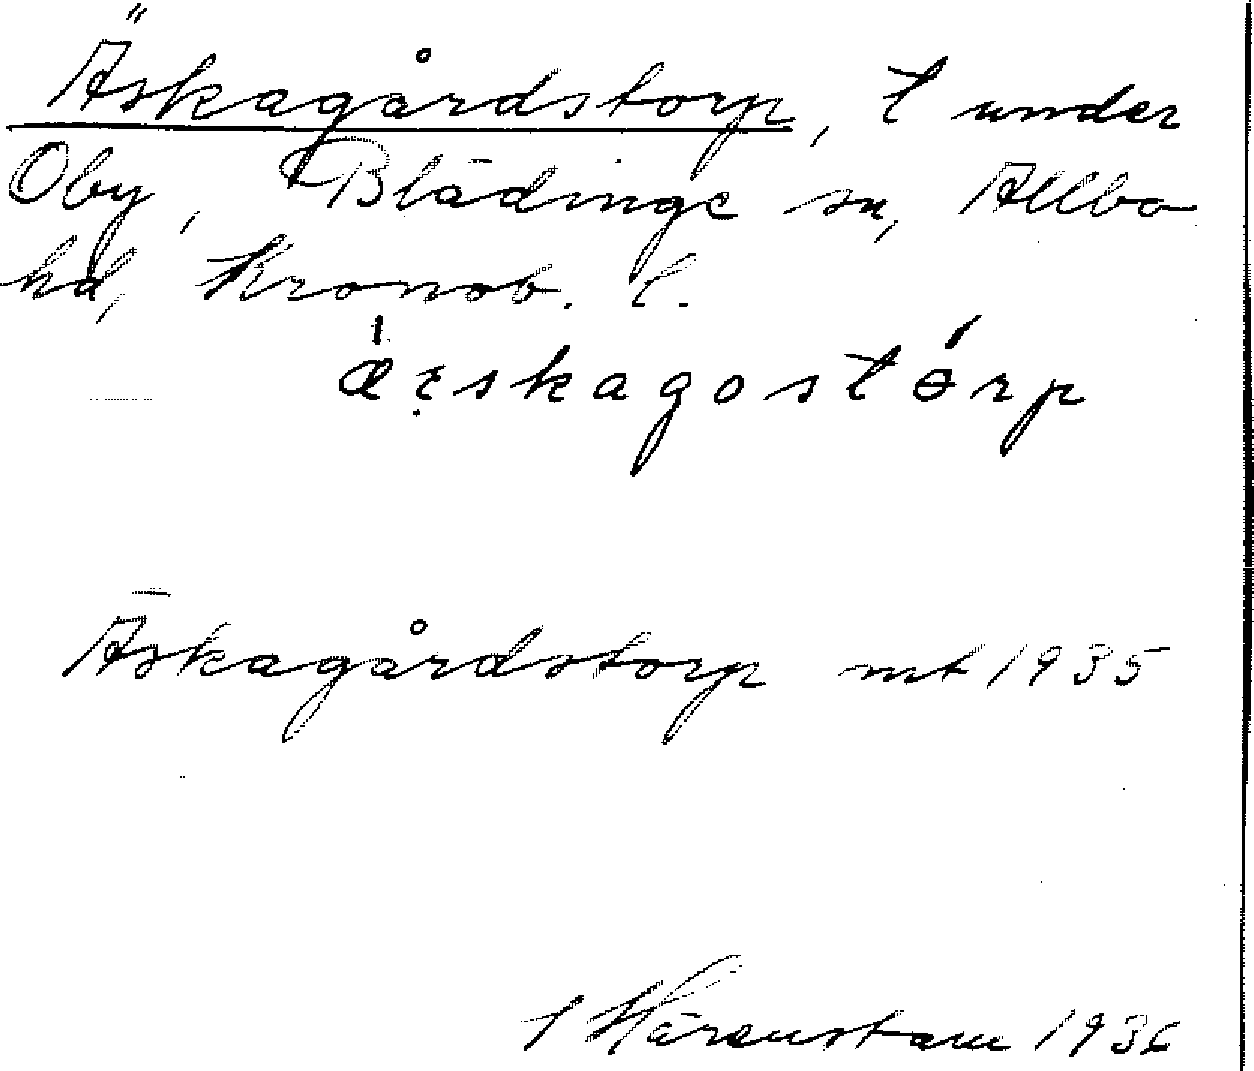 Äskagårdstorp, t under
Oby, Blädinge sn, Allbo
hd, Kronob. l.
æ̍ɛ̣skagostórp
Äskagårdstorp mt 1935
S Härenstam 1936